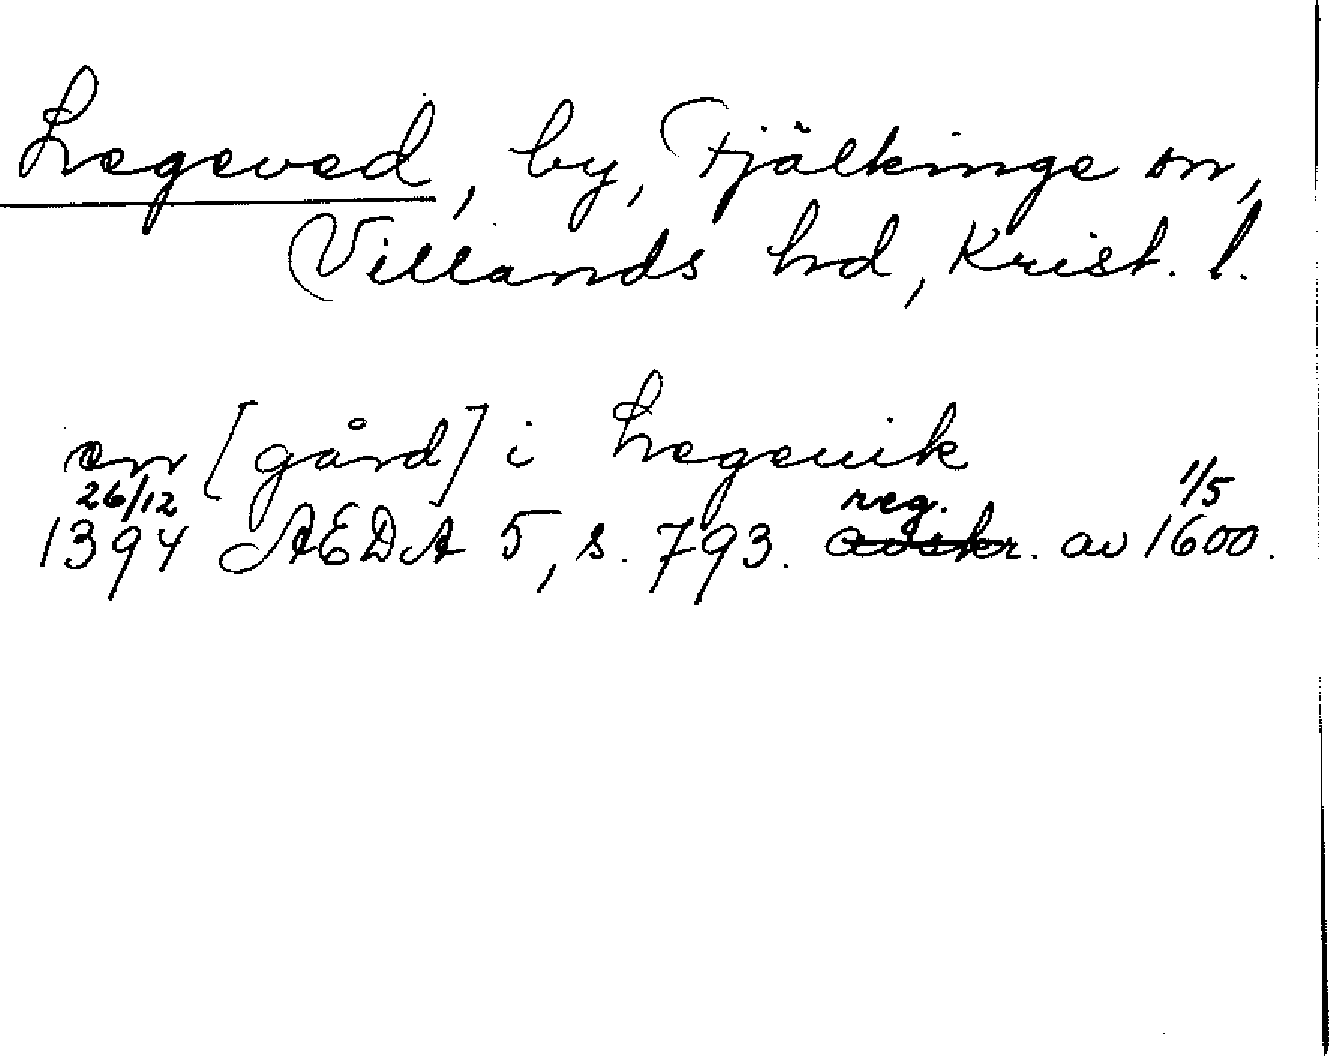 Legeved, by, Fjälkinge sn,
Villands hd, Krist. l.
en [gård] i Legeuik
26/12 reg. 1/5
1394 ÆDA 5, s. 793. avskr. av 1600.